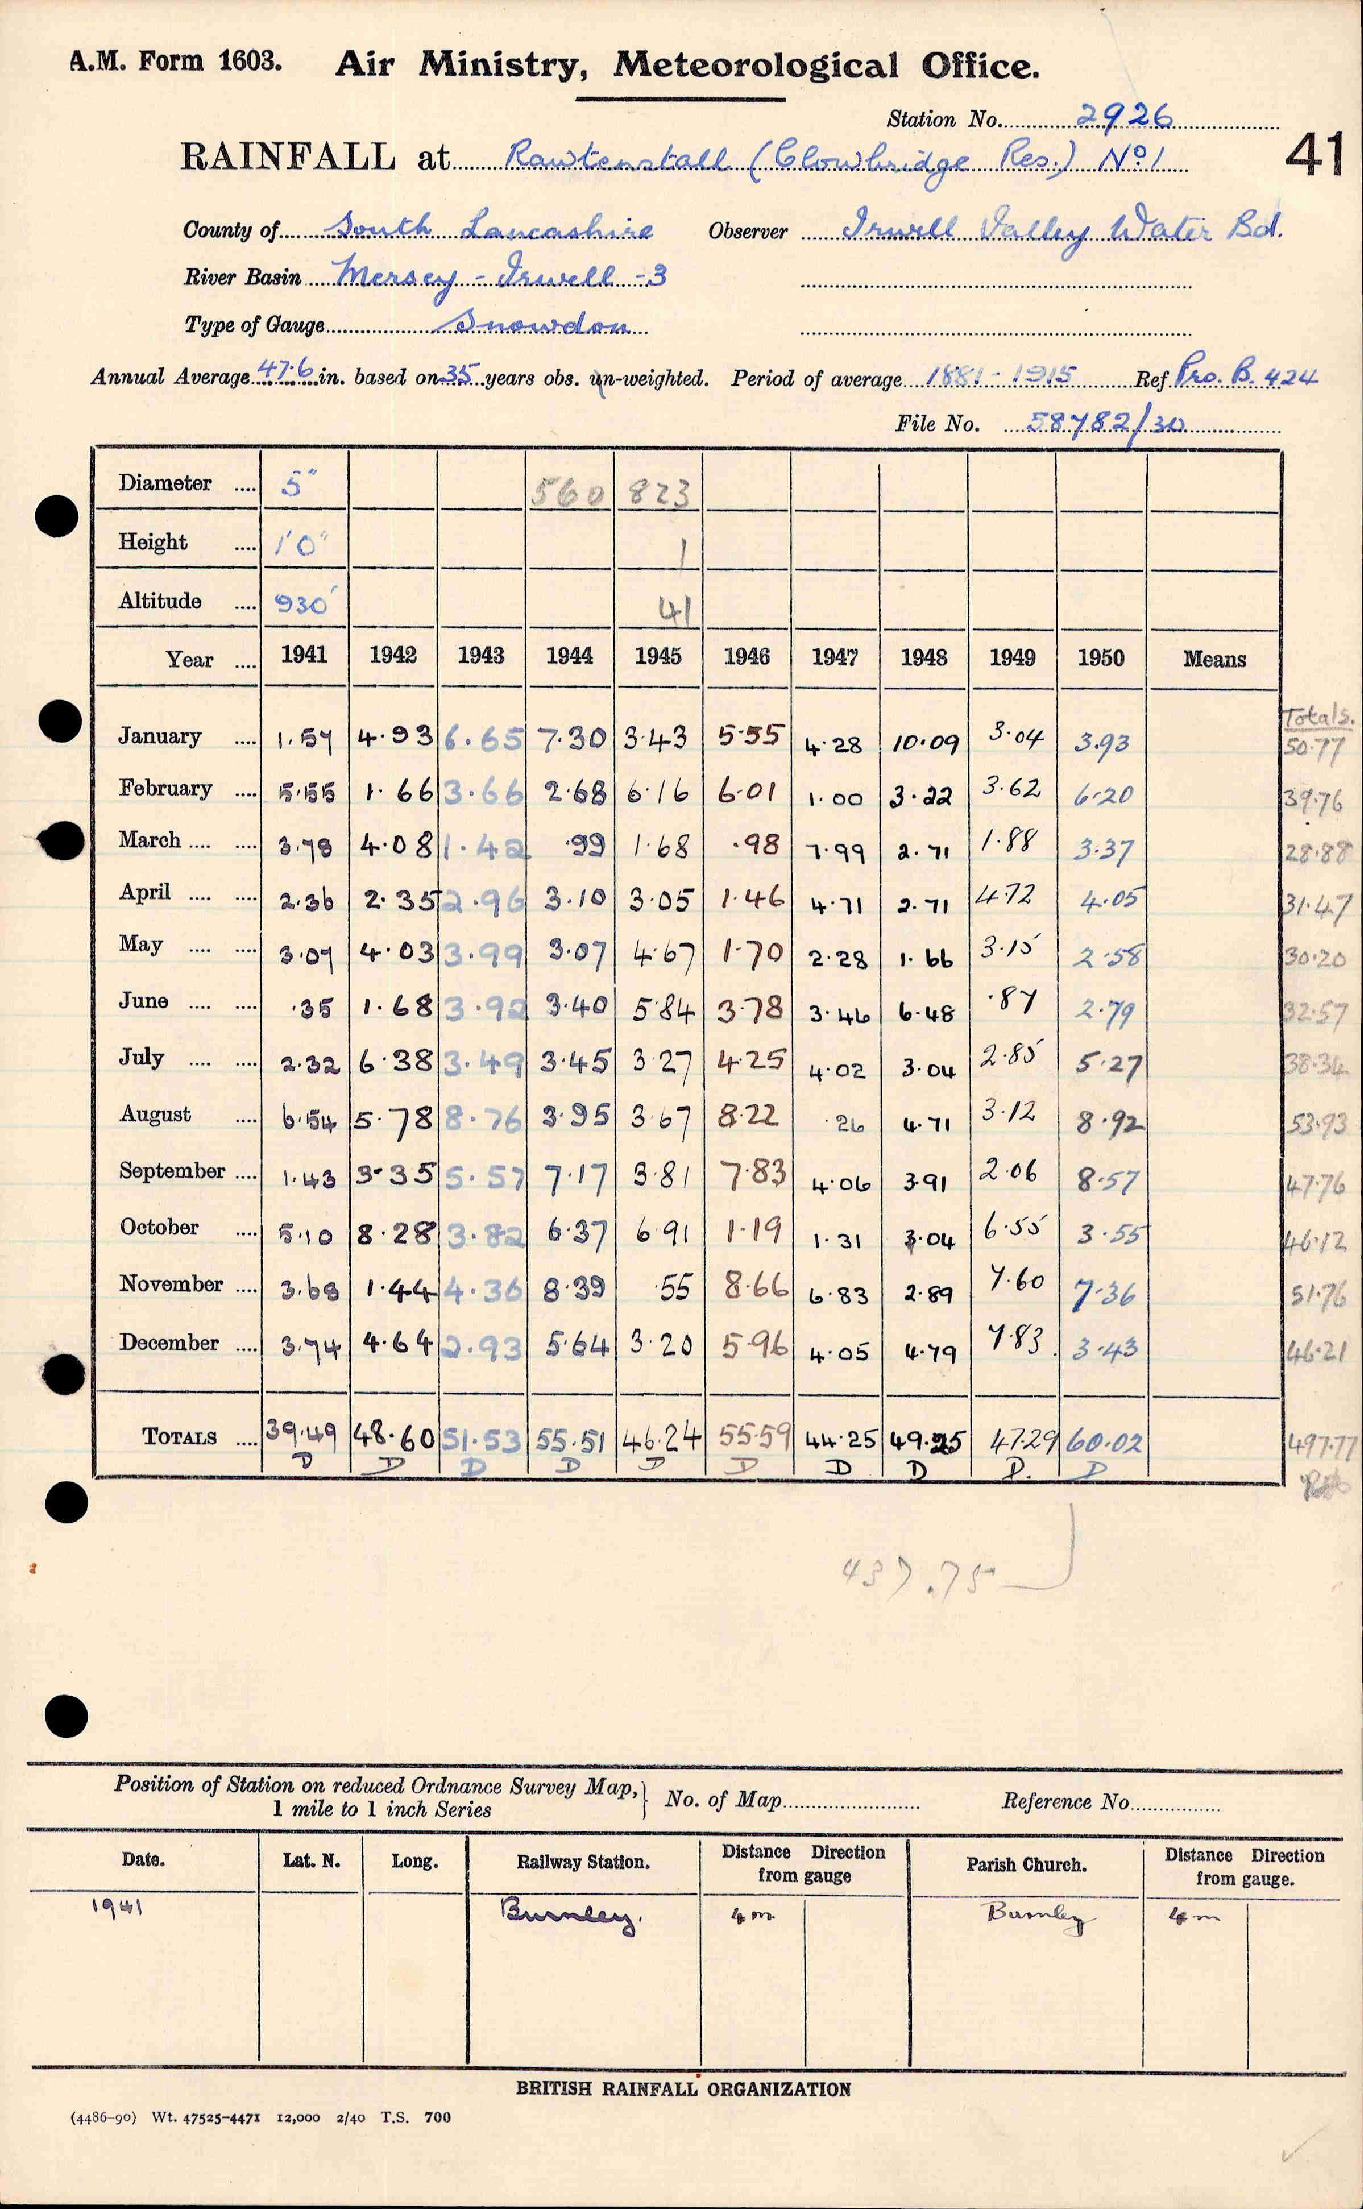 A.M. Form 1603. Air Ministry, Meteorological Office.
Station No. 2926
RAINFALL at Rawtenstall (Clowbridge Res.) No 1 41
County of South Lancashire Observer Irwell Valley Water Bd.
River Basin Mersey - Irwell - 3
Type of Gauge Snowdon
Annual Average 47.6 in. based on 35 years obs. un-weighted. Period of average 1881-1915 Ref Pro. B. 424
File No. 58782/30
Diameter .... 5" 560 823
Height .... 1'0" 1
Altitude .... 930' 41
Year .... 1941 1942 1943 1944 1945 1946 1947 1948 1949 1950 Means
Totals.
January .... 1.57 4.93 6.65 7.30 3.43 5.55 4.28 10.09 3.04 3.93 50.77
February .... 5.55 1.66 3.66 2.68 6.16 6.01 1.00 3.22 3.62 6.20 39.76
March .... .... 3.78 4.08 1.42 .99 1.68 .98 7.99 2.71 1.88 3.37 28.88
April .... .... 2.36 2.35 2.96 3.10 3.05 1.46 4.71 2.71 4.72 4.05 31.47
May .... .... 3.07 4.03 3.99 3.07 4.67 1.70 2.28 1.66 3.15 2.58 30.20
June .... .... .35 1.68 3.92 3.40 5.84 3.78 3.46 6.48 .87 2.79 32.57
July .... .... 2.32 6.38 3.49 3.45 3.27 4.25 4.02 3.04 2.85 5.27 38.34
August .... 6.54 5.78 8.76 3.95 3.67 8.22 .26 4.71 3.12 8.92 53.93
September .... 1.43 3.35 5.57 7.17 3.81 7.83 4.06 3.91 2.06 8.57 47.76
October .... 5.10 8.28 3.82 6.37 6.91 1.19 1.31 3.04 6.55 3.55 46.12
November .... 3.68 1.44 4.36 8.39 .55 8.66 6.83 2.89 7.60 7.36 51.76
December .... 3.74 4.64 2.93 5.64 3.20 5.96 4.05 4.79 7.83 3.43 46.21
TOTALS .... 39.49 48.60 51.53 55.51 46.24 55.59 44.25 49.25 47.29 60.02 497.77
D D D D D D D D D. D
437.75
Position of Station on reduced Ordnance Survey Map, 1 mile to 1 inch Series } No. of Map Reference No.
Date. Lat. N. Long. Railway Station. Distance Direction from gauge Parish Church. Distance Direction from gauge.
1941 Burnley. 4m Burnley 4m
BRITISH RAINFALL ORGANIZATION
(4486-90) Wt. 47525-4471 12,000 2/40 T.S. 700